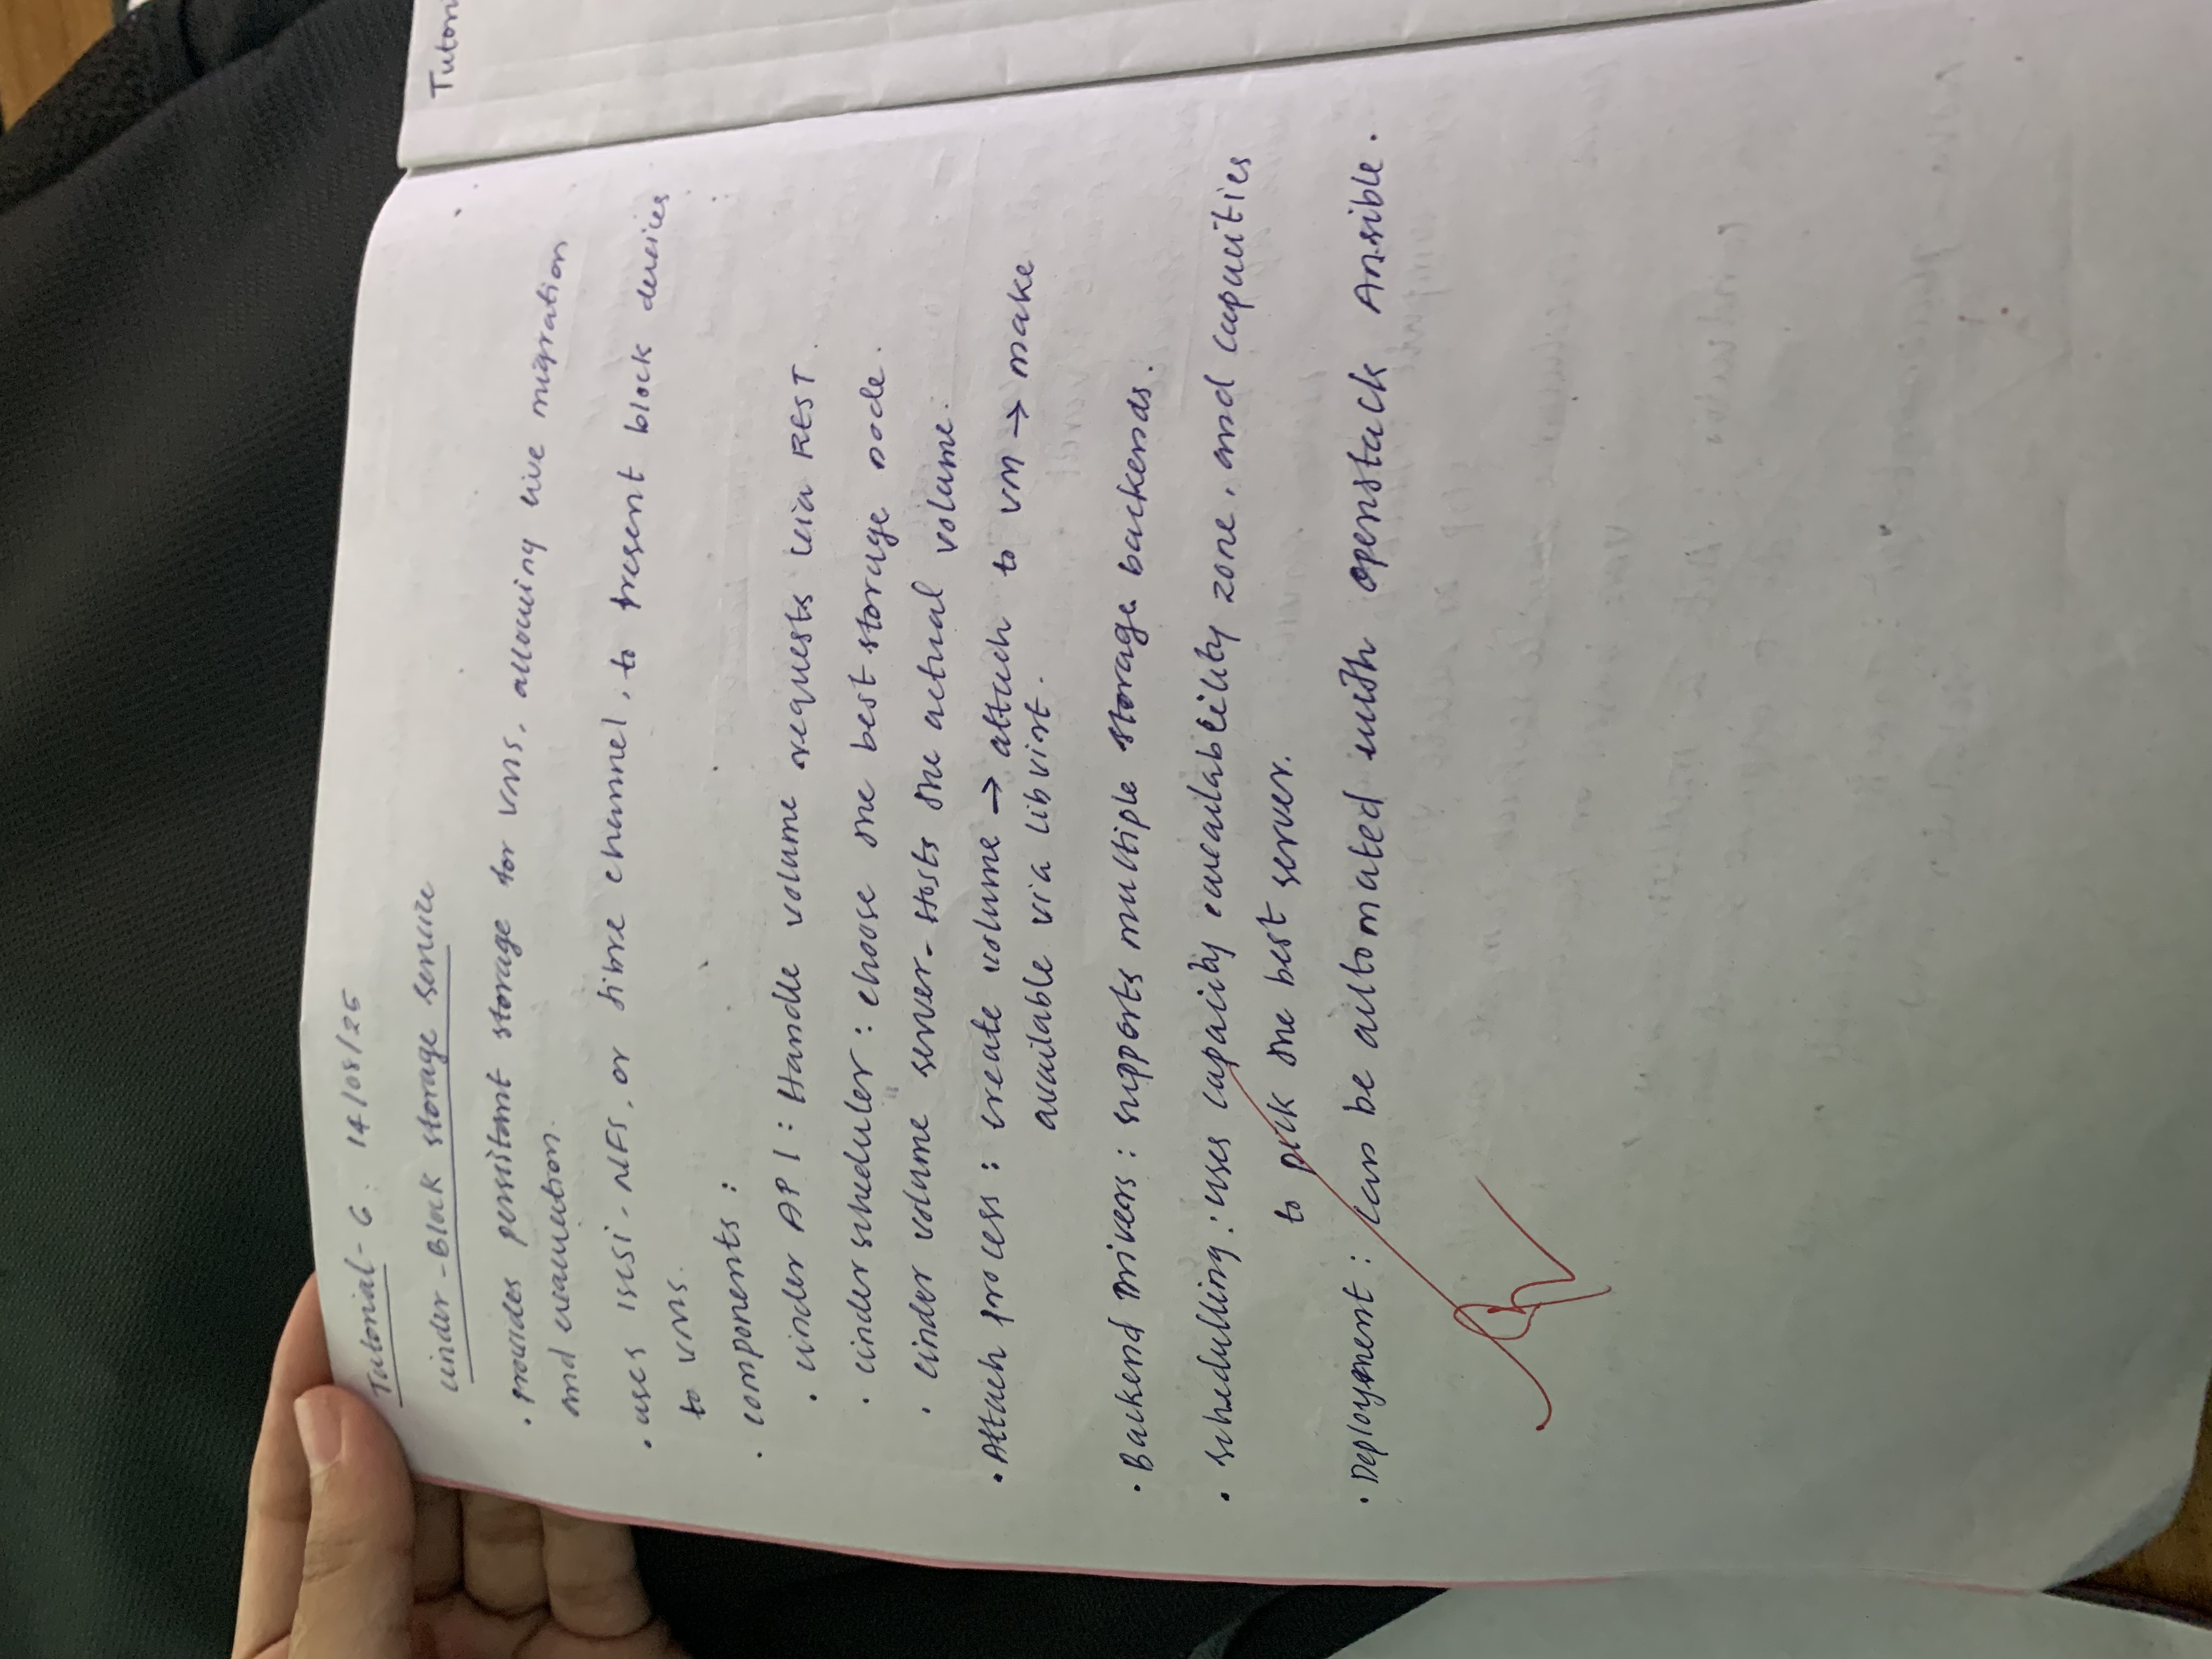 Tutorial - 6. 14/08/25
Tutori
cinder - Block storage service
. provides persistant storage for VMs, allowing live migration
and evacuation.
. uses ISCSI, NFS, or fibre channel, to present block devices
to VMs.
. components :
. cinder API : Handle volume requests via REST.
. cinder scheduler : choose the best storage node.
. cinder volume server - Hosts the actual volume.
. Attach process : create volume → attach to VM → make
available via libvirt.
. Backend Drivers : supports multiple storage backends.
. schedulling : uses capacity, availability zone, and capacities
to pick the best server.
. Deployement : can be automated with openstack Ansible.